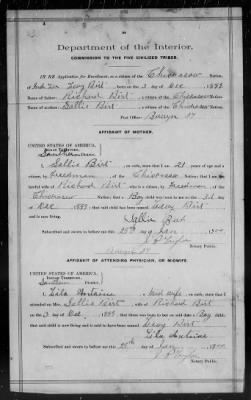 Department of the Interior.
COMMISSION TO THE FIVE CIVILIZED TRIBES.
IN RE Application for Enrollment, as a citizen of the Chickasaw Nation,
of Levy Birt, born on the 3 day of Dec, 1899
Name of Father: Richard Birt, a citizen of the Chickasaw Nation.
Name of Mother: Sallie Birt, a citizen of the Nation.
Post Office:
AFFIDAVIT OF MOTHER.
UNITED STATES OF AMERICA,
INDIAN TERRITORY,
Southern District.
I, Sallie Birt, on oath, state that I am 21 years of age and a
citizen, by Freedman, of the Chickasaw Nation; that I am the
lawful wife of Richard Birt, who is a citizen, by Freedman, of the
Chickasaw Nation; that a Boy child was born to me on 3d day
of Dec, 1899, that said child has been named Levy Birt,
and is now living.
Sallie Birt
Subscribed and sworn to before me this 25th day of Jan
Notary Public.
AFFIDAVIT OF ATTENDING PHYSICIAN, OR MIDWIFE.
UNITED STATES OF AMERICA,
INDIAN TERRITORY,
Southern District.
I, a Mid wife, on oath, state that I
attended on Mrs. Sallie Birt, wife of Richard Birt
on the 3 day of Dec, 1899; that there was born to her on said date a Boy child;
that said child is now living and is said to have been named Levy Birt
Subscribed and sworn to before me this 25th day of Jan
Notary Public.